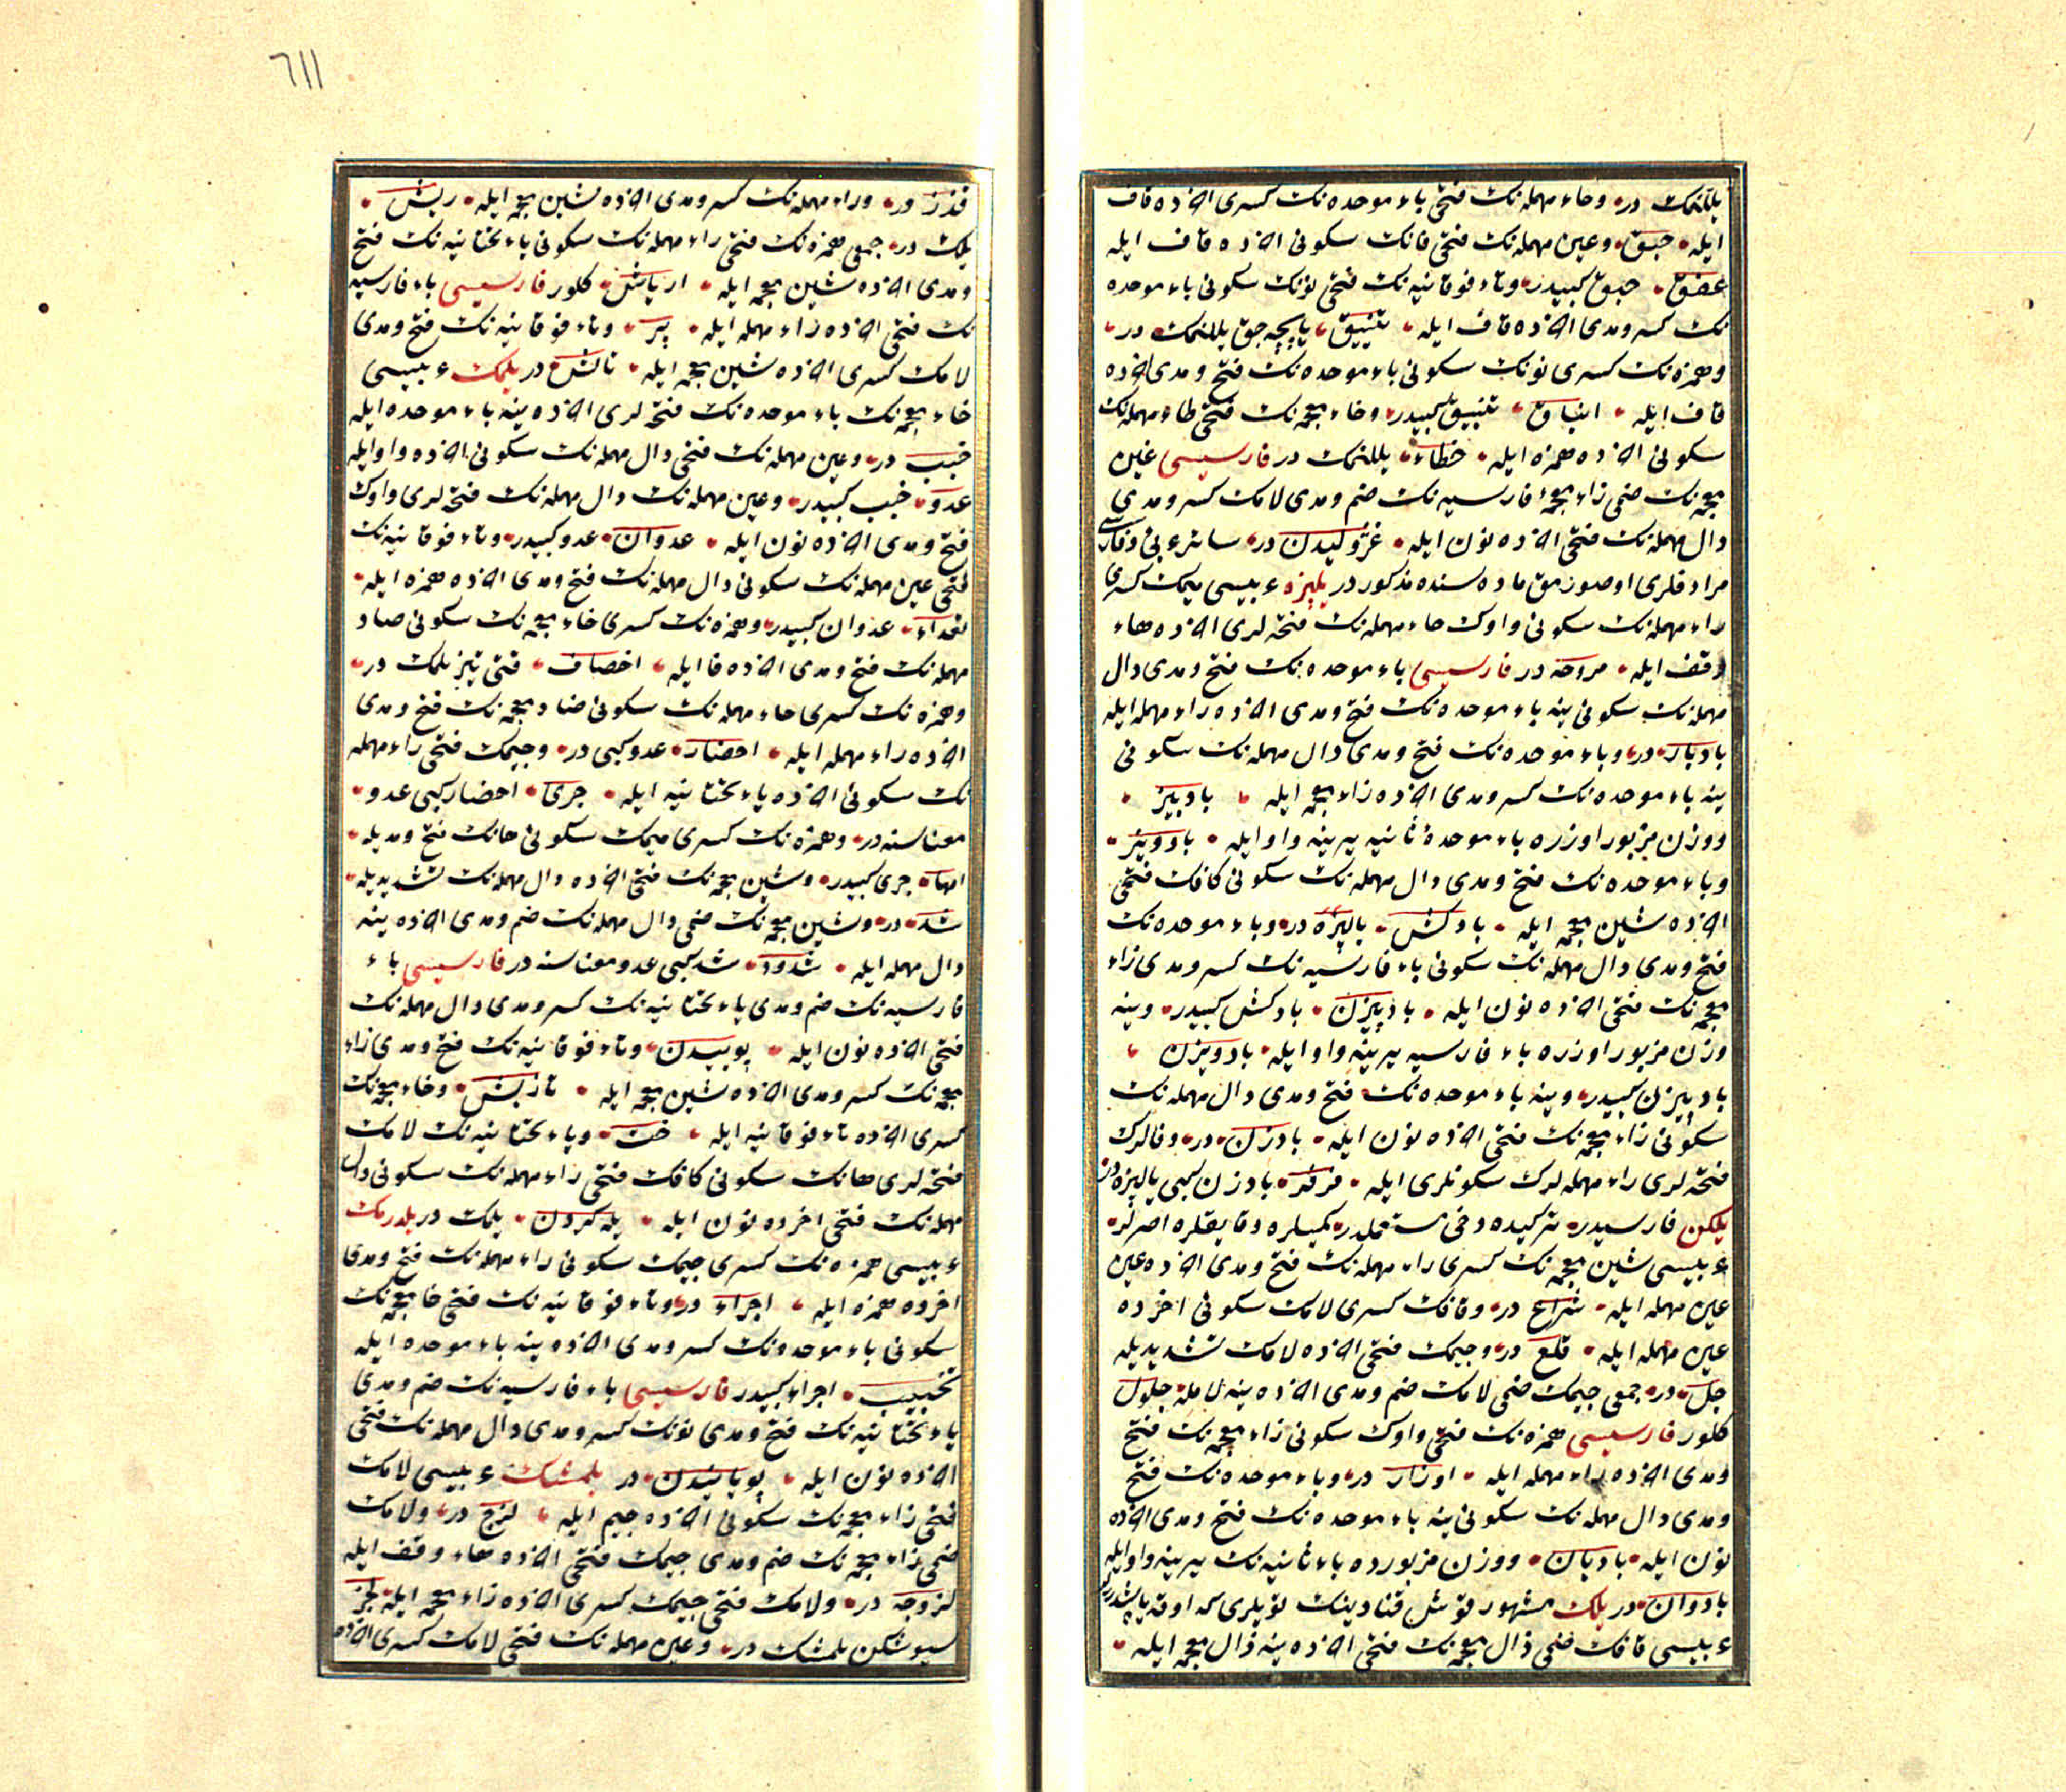 يللنمك در وحاء مهمله نك فتحى باء موحده نك كسرى اخرده قاف
ايله حبق وعين مهمله نك فتحى فانك سكونى اخرده قاف ايله
عفق حبق كبيدر وتاء فوقانيه نك فتحى نونك سكونى باء موحده
نك كسر ومدى اخرده قاف ايله تنبيق پاپچه جق يللنمك در
وهمزه نك كسرى نونك سكونى باء موحده نك فتح ومدى اخرده
قاف ايله انباق تنبيق كبيدر وخاء معجمه نك فتحى طاء مهمله نك
سكونى اخرده همزه ايله خطاء يللنمك در فارسيسى غين
معجمه نك ضمى زاء معجمهء فارسيه نك ضم ومدى لامك كسر ومدى
دال مهمله نك فتحى اخرده نون ايله غژوليدن در سائر عربى وفارسى
مرادفلرى اوصورمق ماده سنده مذكور در يلپزه عربيسى ميمك كسرى
راء مهمله نك سكونى واوك حاء مهمله نك فتحه لرى اخرده هاء
وقف ايله مروحه در فارسيسى باء موحده نك فتح ومدى دال
مهمله نك سكونى ينه باء موحده نك فتح ومدى اخرده راء مهمله ايله
بادبار در وباء موحده نك فتح ومدى دال مهمله نك سكونى
ينه باء موحده نك كسر ومدى اخرده زاء معجمه ايله بادبيز
ووزن مزبور اوزره باء موحدهٔ ثانيه يرينه واو ايله بادويز
وباء موحده نك فتح ومدى دال مهمله نك سكونى كافك فتحى
اخرده شين معجمه ايله بادكش يالپزه در وباء موحده نك
فتح ومدى دال مهمله نك سكونى باء فارسيه نك كسر ومدى زاء
معجمه نك فتحى اخرده نون ايله بادپيزن بادكش كبيدر وينه
وزن مزبور اوزره باء فارسيه يرينه واو ايله بادويزن
بادپيزن كبيدر وينه باء موحده نك فتح ومدى دال مهمله نك
سكونى زاء معجمه نك فتحى اخرده نون ايله بادزن در وفالرك
فتحه لرى راء مهمله لرك سكونلرى ايله فرفر بادزن كبى يالپزه در
يلكن فارسيدر تركيده دخى مستعملدر كميلره وقايقلره اصرلر
عربيسى شين معجمه نك كسرى راء مهمله نك فتح ومدى اخرده عين
عين مهمله ايله شراع در وقافك كسرى لامك سكونى اخرده
عين مهمله ايله قلع در وجيمك فتحى اخرده لامك تشديديله
جل در جمعى جيمك ضمى لامك ضم ومدى اخرده ينه لامله جلول
كلور فارسيسى همزه نك فتحى واوك سكونى زاء معجمه نك فتح
ومدى اخرده راء مهمله ايله اوزار در وباء موحده نك فتح
ومدى دال مهمله نك سكونى ينه باء موحده نك فتح ومدى اخرده
نون ايله بادبان ووزن مزبورده باء ثانيه نك يرينه واو ايله
بادوان در يلك مشهور قوش قنادينك تويلرى كه اوقه ياپشدررلر
عربيسى قافك ضمى ذال معجمه نك فتحى اخرده ينه ذال معجمه ايله
٦١١
قذذ در وراء مهمله نك كسر ومدى اخرده شين معجمه ايله ريش
يلك در جمعى همزه نك فتحى راء مهمله نك سكونى ياء تحتانيه نك فتح
ومدى اخرده شين معجمه ايله ارياش كلور فارسيسى باء فارسيه
نك فتحى اخرده راء مهمله ايله پر وتاء فوقانيه نك فتح ومدى
لامك كسرى اخرده شين معجمه ايله تالش در يلمك عربيسى
خاء معجمه نك باء موحده نك فتحه لرى اخرده ينه باء موحده ايله
خبب در وعين مهمله نك فتحى دال مهمله نك سكونى اخرده واو ايله
عدو خبب كبيدر وعين مهمله نك دال مهمله نك فتحه لرى واوك
فتح ومدى اخرده نون ايله عدوان عدو كبيدر وتاء فوقانيه نك
فتحى عين مهمله نك سكونى دال مهمله نك فتح ومدى اخرده همزه ايله
تعداء عدوان كبيدر وهمزه نك كسرى خاء معجمه نك سكونى صاد
مهمله نك فتح ومدى اخرده فا ايله اخصاف قتى تيز يلمك در
وهمزه نك كسرى حاء مهمله نك سكونى ضاد معجمه نك فتح ومدى
اخرده راء مهمله ايله احضار عدو كبى در وجيمك فتحى راء مهمله
نك سكونى اخرده ياء تحتانيه ايله جرى احضار كبى عدو
معناسنه در وهمزه نك كسرى ميمك سكونى هانك فتح ومديله
امهاء جرى كبيدر وشين معجمه نك فتحى اخرده دال مهمله نك تشديديله
شد در وشين معجمه نك ضمى دال مهمله نك ضم ومدى اخرده ينه
دال مهمله ايله شدود شد كبى عدو معناسنه در فارسيسى باء
فارسيه نك ضم ومدى ياء تحتانيه نك كسر ومدى دال مهمله نك
فتحى اخرده نون ايله پوييدن وتاء فوقانيه نك فتح ومدى زاء
معجمه نك كسر ومدى اخرده شين معجمه ايله تازيش وخاء معجمه نك
كسرى اخرده تاء فوقانيه ايله خت وياء تحتانيه نك لامك
فتحه لرى هانك سكونى كافك فتحى راء مهمله نك سكونى دال
مهمله نك فتحى اخرده نون ايله يله كردن يلمك در يلدرمك
عربيسى همزه نك كسرى جيمك سكونى راء مهمله نك فتح ومدى
اخرده همزه ايله اجراء در وتاء فوقانيه نك فتحى خا معجمه نك
سكونى باء موحده نك كسر ومدى اخرده ينه باء موحده ايله
تخبيب اجراء كبيدر فارسيسى باء فارسيه نك ضم ومدى
ياء تحتانيه نك فتح ومدى نونك كسر ومدى دال مهمله نك فتحى
اخرده نون ايله پويانيدن در يلمشك عربيسى لامك
فتحى زاء معجمه نك سكونى اخرده جيم ايله لزج در ولامك
ضمى زاء معجمه نك ضم ومدى جيمك فتحى اخرده هاء وقف ايله
لزوجه در ولامك فتحى جيمك كسرى اخرده زاء معجمه ايله لجز
سوشكن يلمشك در وعين مهمله نك فتحى لامك كسرى اخرده